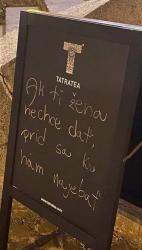 TATRATEA
Ak ti žena
nechce dať,
príď sa ku
nám najebať